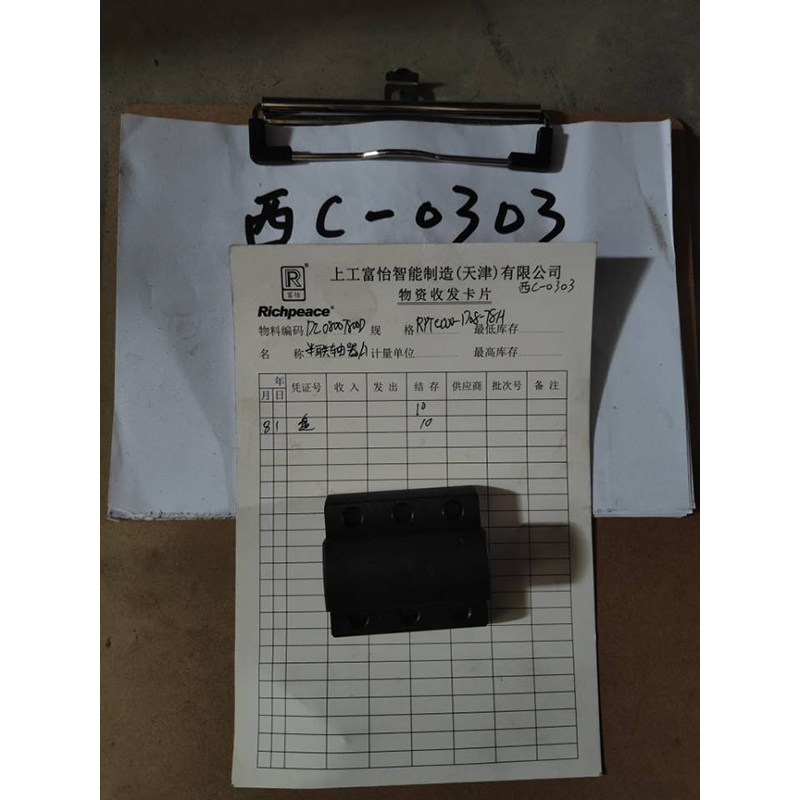 西C-0303
R
富怡
Richpeace®
上工富怡智能制造(天津)有限公司
物资收发卡片
西C-0303
物料编码 规格 最低库存
名称 半联轴器A 计量单位 最高库存
年 凭证号 收入 发出 结存 供应商 批次号 备注
月 日
10
8 1 盘 10